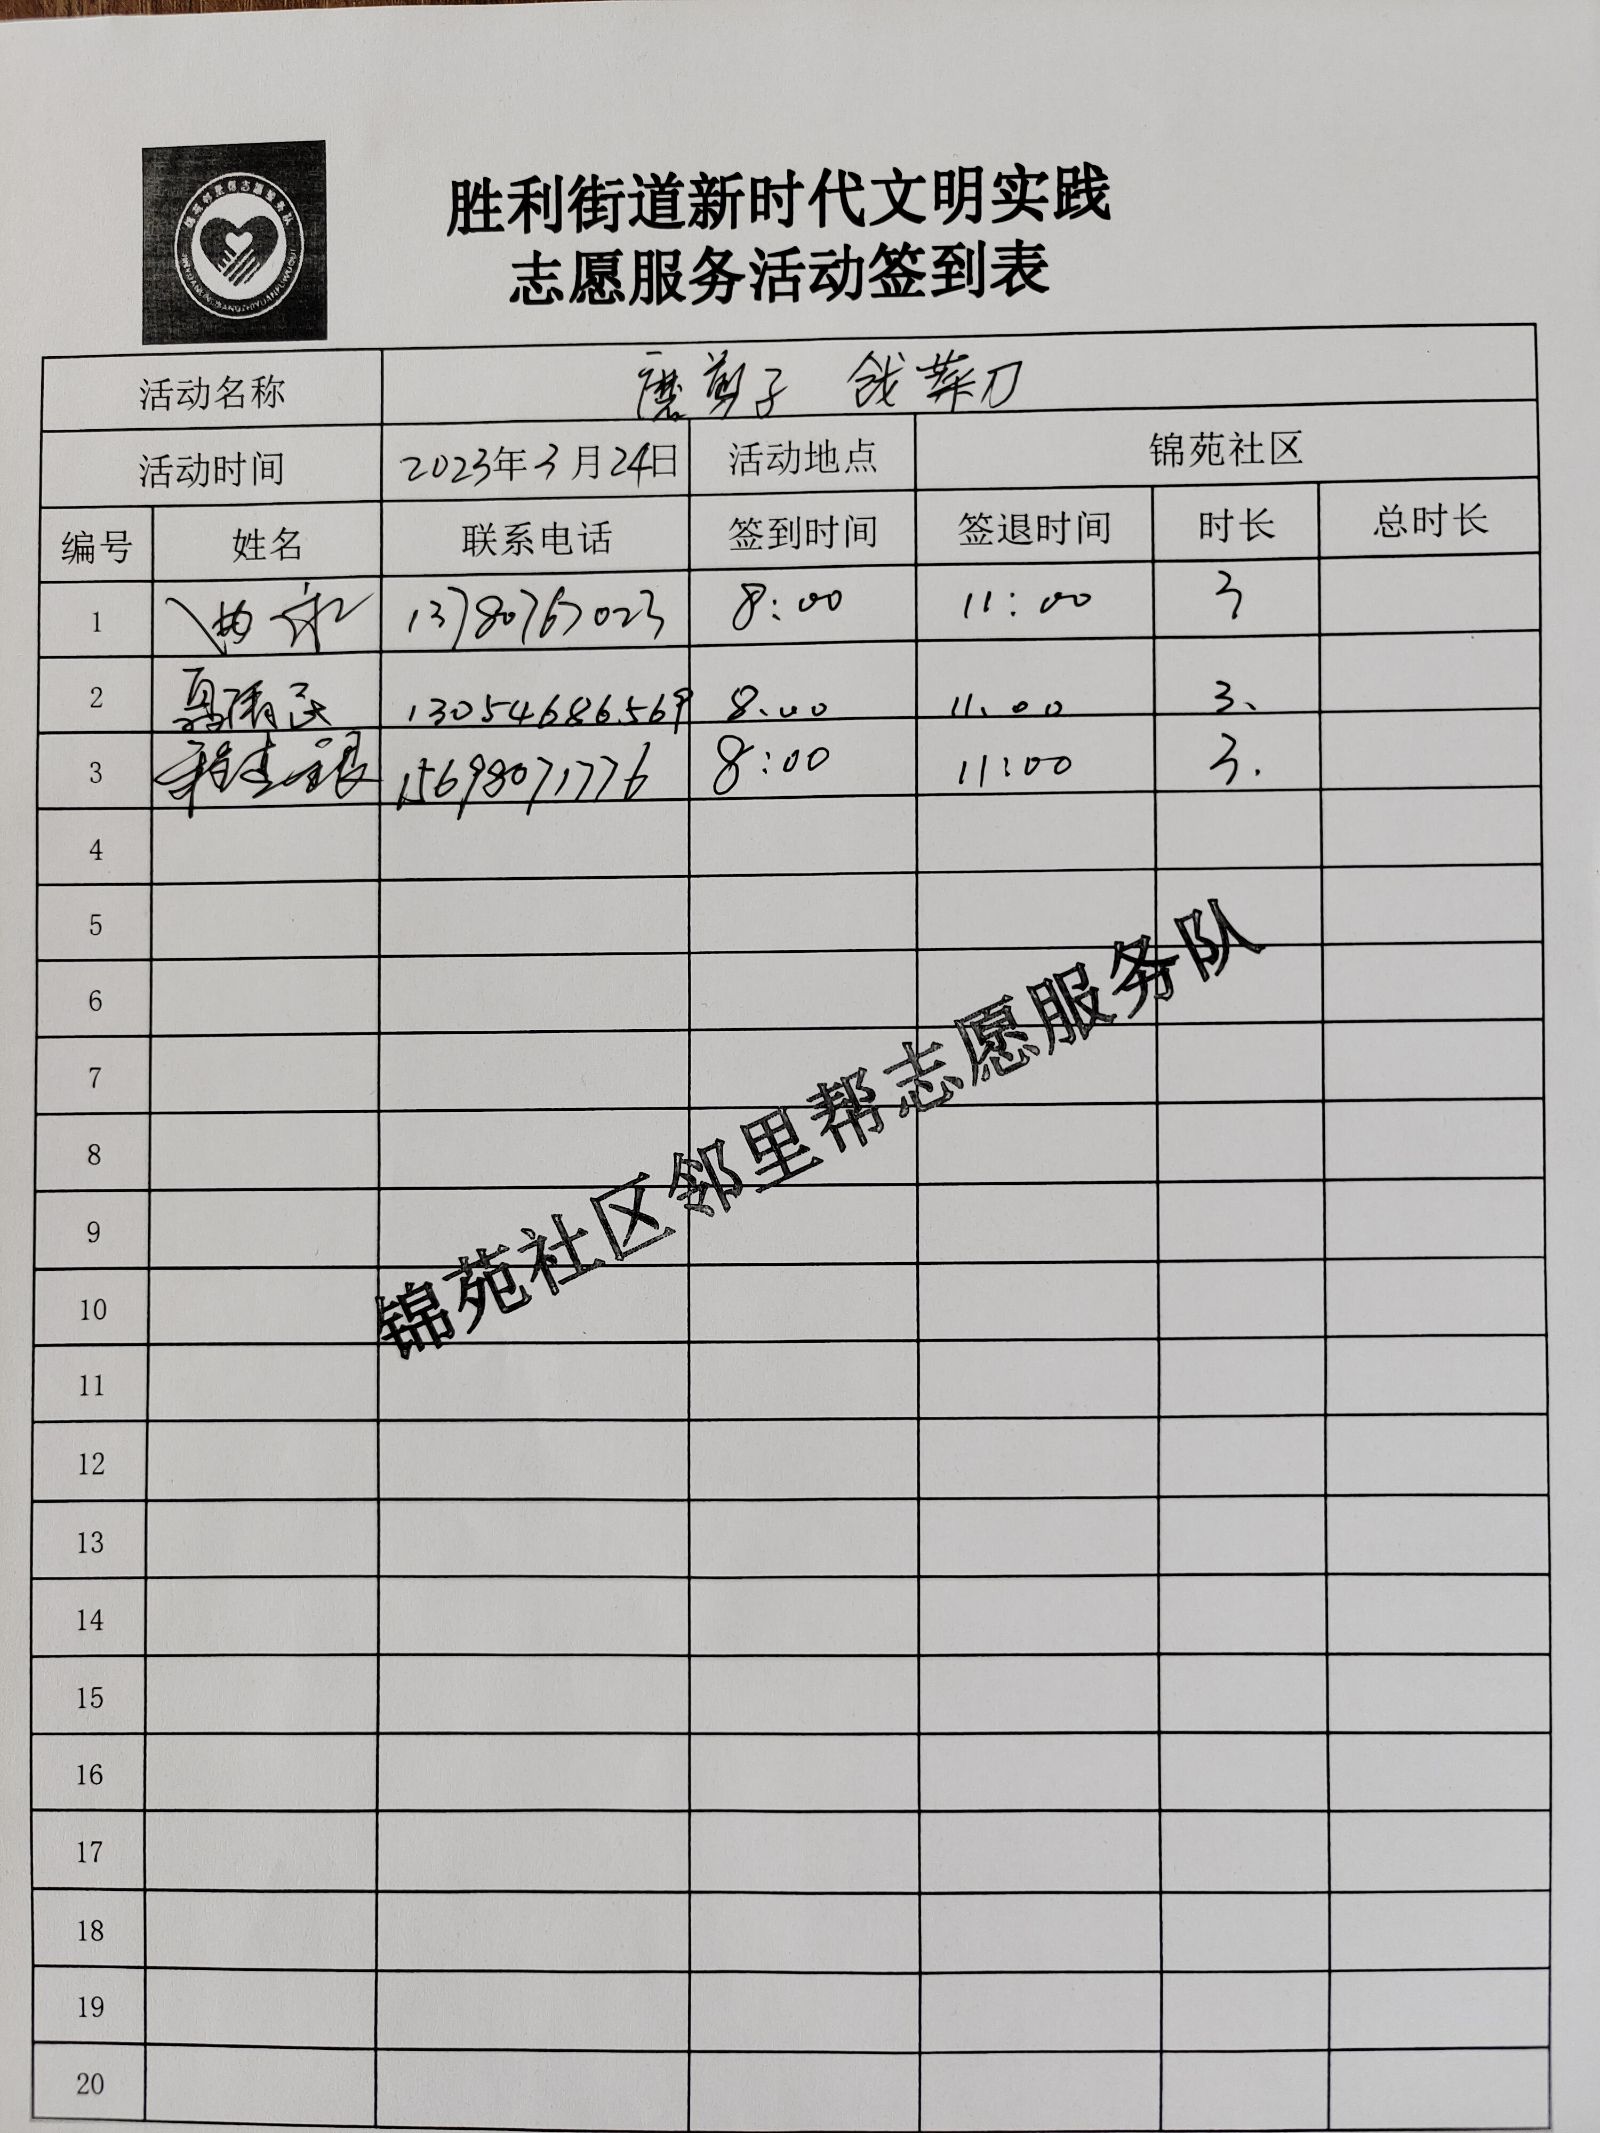 胜利街道新时代文明实践
志愿服务活动签到表
活动名称 磨剪子 戗菜刀
活动时间 2023年3月24日 活动地点 锦苑社区
编号 姓名 联系电话 签到时间 签退时间 时长 总时长
1 13780767023 8:00 11:00 3
2 13054686569 8:00 11:00 3.
3 15698071776 8:00 11:00 3.
4
5
6
7
8
9
10
11
12
13
14
15
16
17
18
19
20
锦苑社区邻里帮志愿服务队